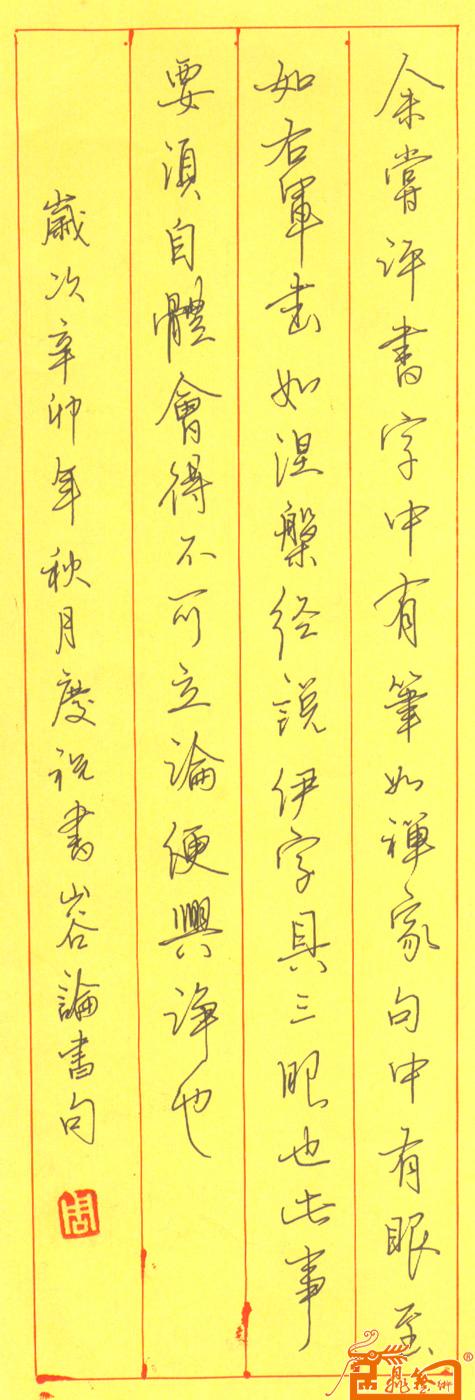 余嘗评書字中有筆如禅家句中有眼至
如右軍書如涅槃经說伊字具三眼也此事
要須自體會得不可立論便興諍也
歲次辛卯年秋月慶祝書谷論書句
周
鼎藝術
®